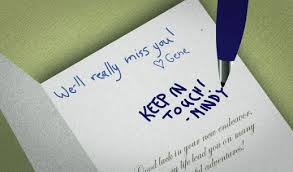 We'll really miss you!
♡ Gene
KEEP IN
TOUCH!
-MINDY
Good luck in your new endeavor.
life lead you on many
adventures!